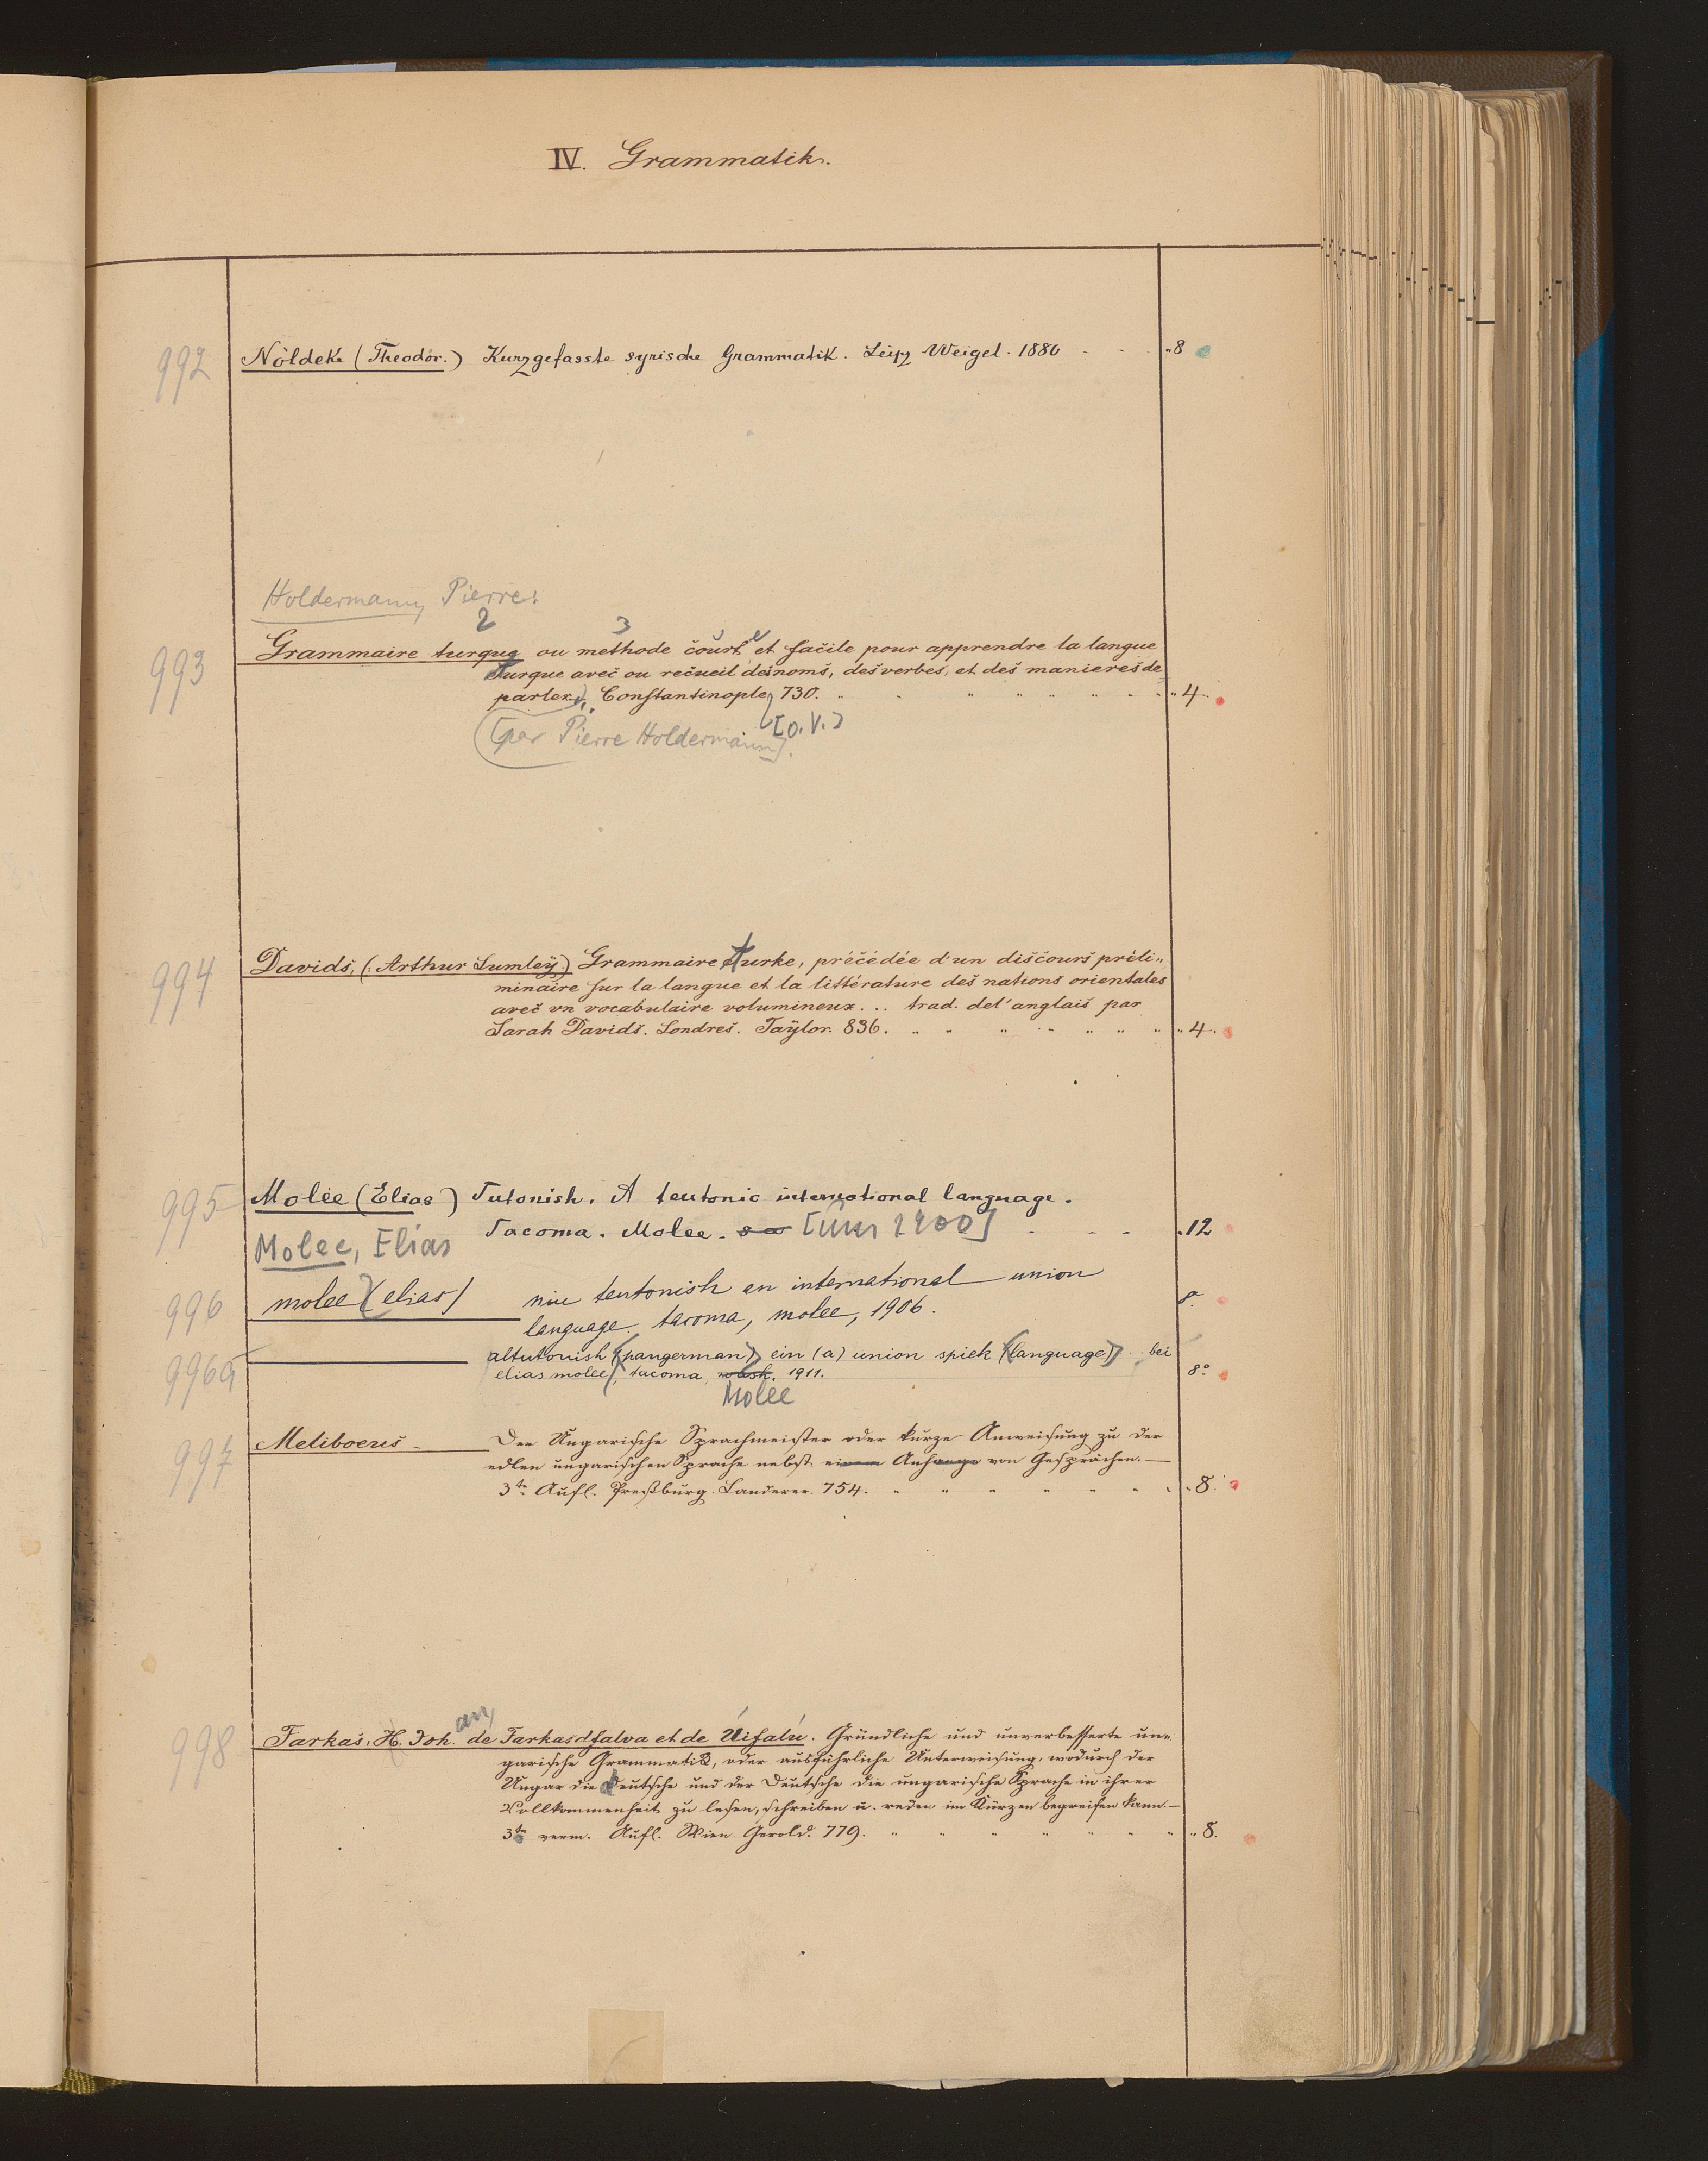 IV. Grammatik.
992 Nöldeke (Theodor.) Kurzgefasste syrische Grammatik. Leipz Weigel. 1880 - - "8
Holdermann, Pierre:
2 3
993 Grammaire turque ou methode courte et facile pour apprendre la langue
turque avec ou recueil des noms, des verbes, et des manieres de
parler. Constantinople, 730. " " " " " " " "4.
[o. V.]
[par Pierre Holdermann].
994 Davids, (: Arthur Lumley.) Grammaire turke, précédée d'un discours préli-
minaire sur la langue et la littérature des nations orientales
avec un vocabulaire volumineux... trad. de l'anglais par
Sarah Davids. Londres. Taylor. 836. " " " " " " " "4.
995 Molee (Elias) Tutonish. A teutonic international language.
Tacoma. Molee. s a [um 1900] - - - "12
Molee, Elias
996 molee (elias) niu teutonish an international union
language. tacoma, molee, 1906. 8°
996a altutonish (pangerman) ein (a) union spiek (language) .. bei
elias molee, tacoma. 1911. 8°
Molee
997 Meliboeus - Der Ungarische Sprachmeister oder kurze Anweisung zu der
edlen ungarischen Sprache nebst einem Anhange von Gesprächen. —
3te Aufl. Preßburg. Landerer. 754. " " " " " " "8.
998 Farkas, H. Johan, de Farkasdfalva et de Úifalú. Gründliche und unverbesserte un-
garische Grammatik, oder ausführliche Unterweisung, wodurch der
Ungar die deutsche und der Deutsche die ungarische Sprache in ihrer
Vollkommenheit zu lesen, schreiben u. reden im Kürzen begreifen kann. —
3te verm. Aufl. Wien Gerold. 779. " " " " " " " "8.